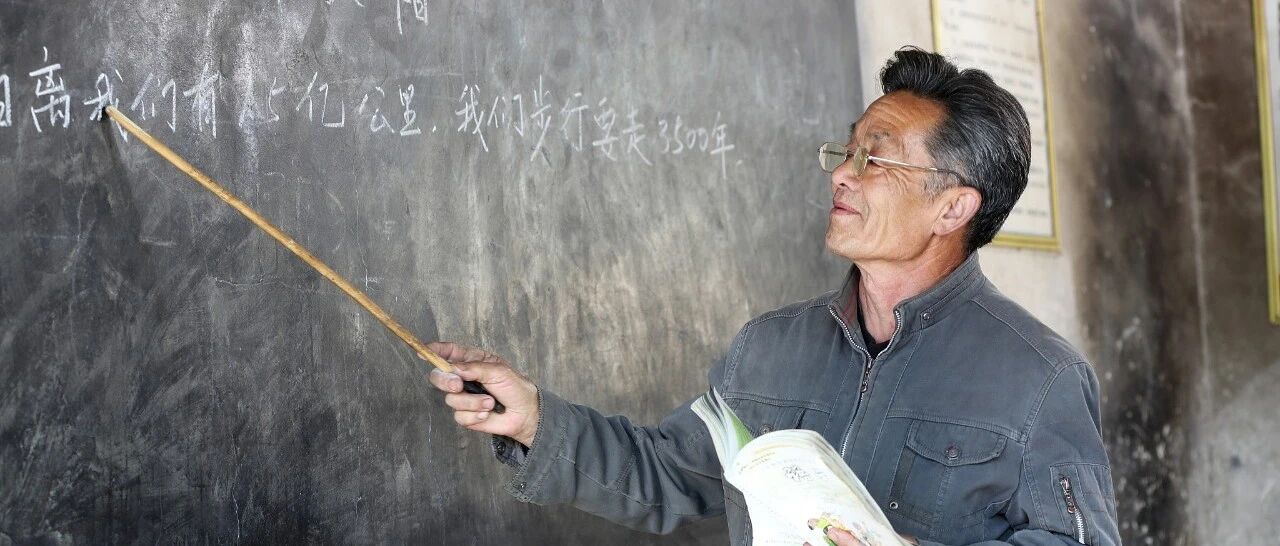 阳
离我们有1.5亿公里,我们步行要走3500年.